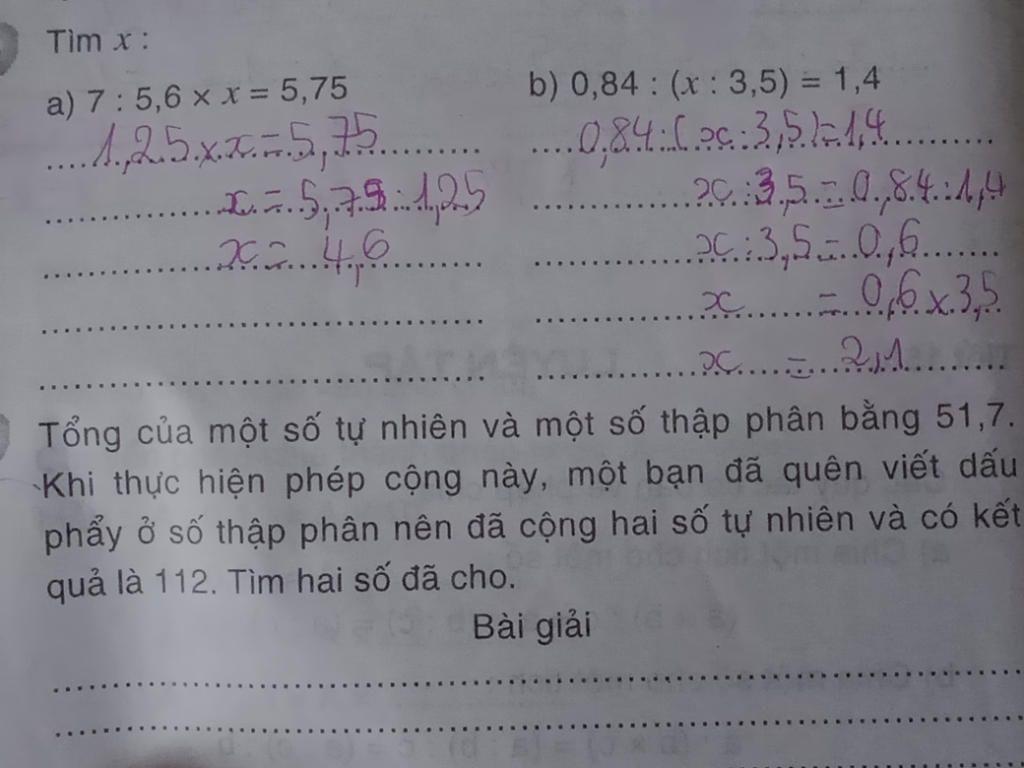 Tìm x :
a) 7 : 5,6 × x = 5,75
b) 0,84 : (x : 3,5) = 1,4
1,25 x x = 5,75
0,84 : (x : 3,5) = 1,4
x = 5,75 : 1,25
x : 3,5 = 0,84 : 1,4
x = 4,6
x : 3,5 = 0,6
x = 0,6 x 3,5
x = 2,1
Tổng của một số tự nhiên và một số thập phân bằng 51,7.
Khi thực hiện phép cộng này, một bạn đã quên viết dấu
phẩy ở số thập phân nên đã cộng hai số tự nhiên và có kết
quả là 112. Tìm hai số đã cho.
Bài giải